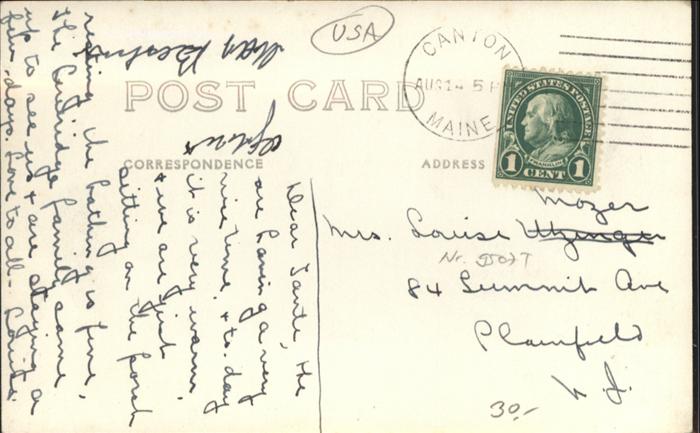 USA
CANTON
AUG 14 5 P
MAINE
UNITED STATES POSTAGE
FRANKLIN
1 CENT 1
POST CARD
CORRESPONDENCE
ADDRESS
Dear Tante, The
are having a very
nice time, & to-day
it is very warm
& we are just
sitting on the porch
resting, the bathing is fine,
the family came
up to see us & are staying a
few days. Love to all –
Mozer
Mrs. Louise
84 Summit Ave
Plainfield
N. J.
30,-